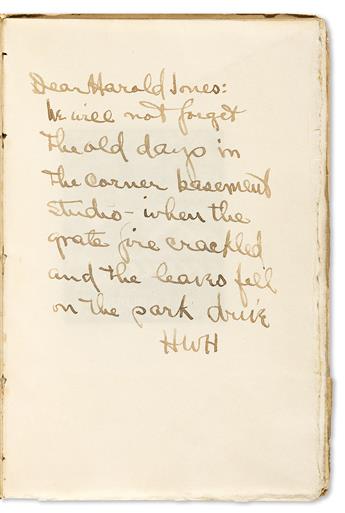 Dear Harold Jones:
We will not forget
the old days in
the corner basement
studio - when the
grate fire crackled
and the leaves fell
on the park drive
HWH